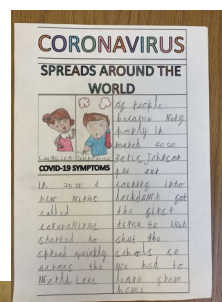 CORONAVIRUS
SPREADS AROUND THE
WORLD
COVID-19 SYMPTOMS
In 2020 a
new virus
called
coronavirus
started to
spread quickly
across the
World
as people
became very
poorly in
march 2020
Boris Johnson
put our
country into
lockdown for
the first
time. He
shut the
schools so
we had to
learn from
home